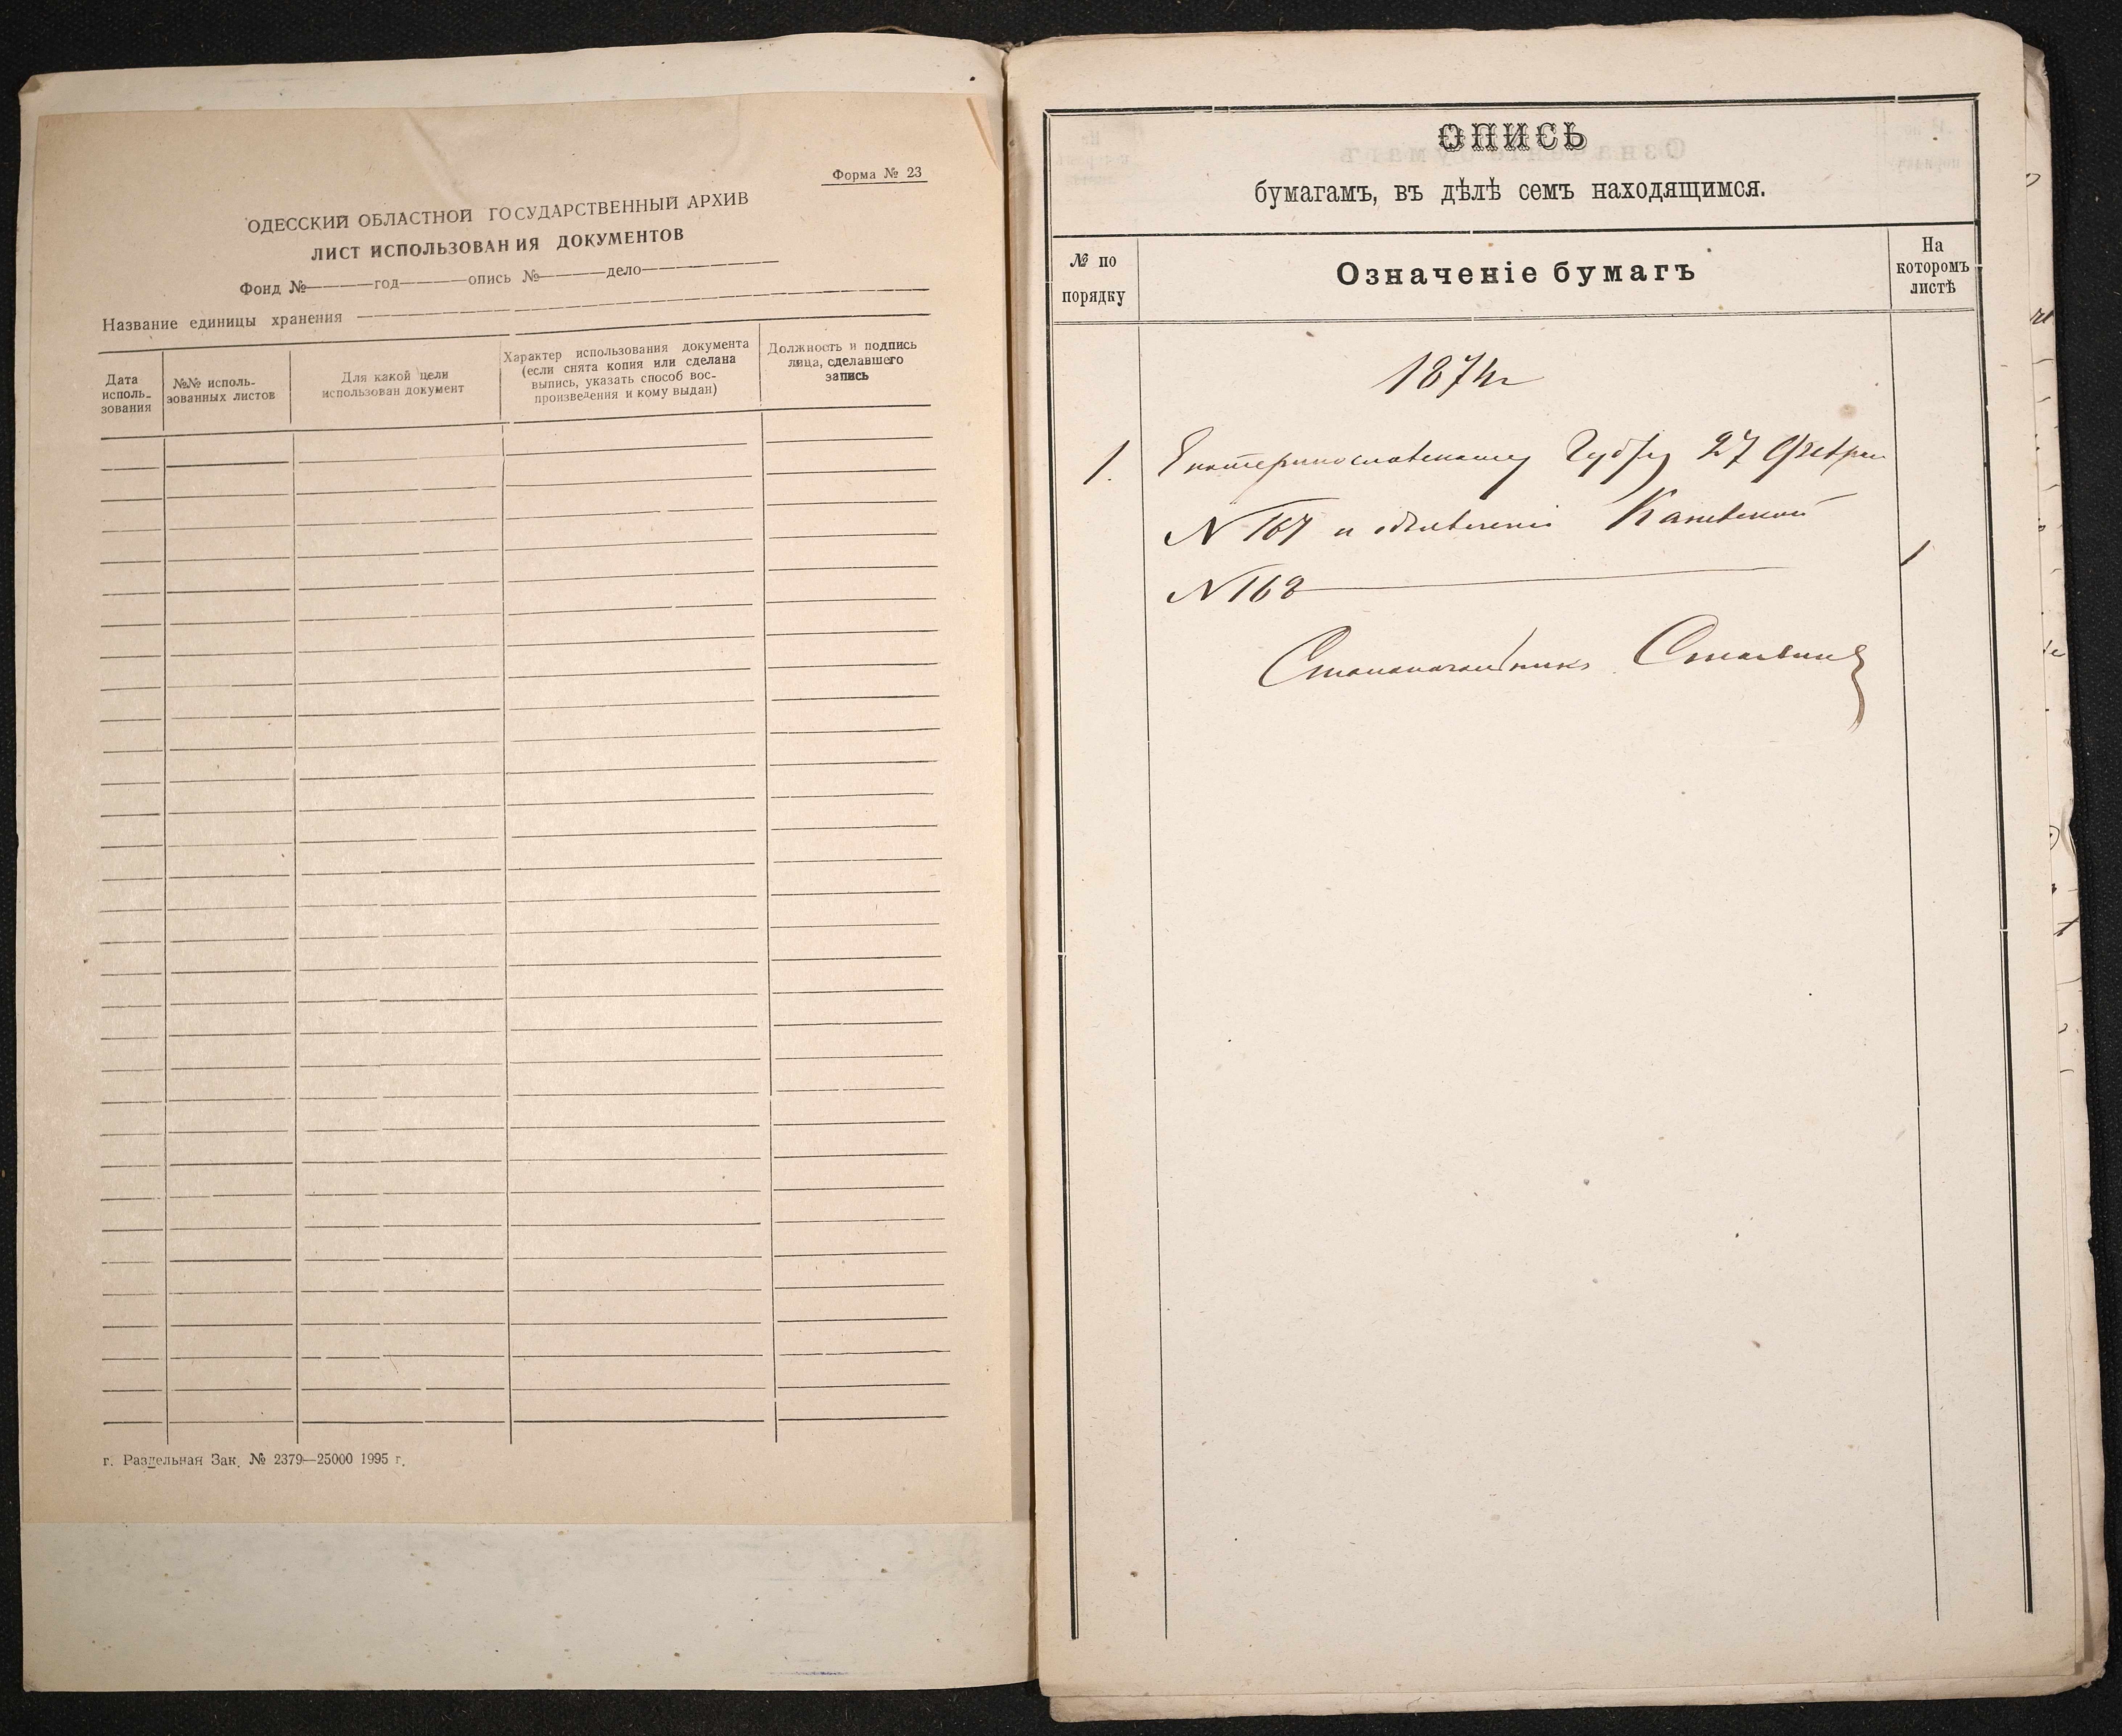 Форма № 23
ОДЕССКИЙ ОБЛАСТНОЙ ГОСУДАРСТВЕННЫЙ АРХИВ
ЛИСТ ИСПОЛЬЗОВАНИЯ ДОКУМЕНТОВ
Фонд № год опись № дело
Название единицы хранения
Дата исполь-
зования
№№ исполь-
зованных листов
Для какой цели
использован документ
Характер использования документа
(если снята копия или сделана
выпись, указать способ вос-
произведения и кому выдан)
Должность и подпись
лица, сделавшего
запись
г. Раздельная Зак. № 2379—25000 1995 г.
ОПИСЬ
бумагамъ, въ дѣлѣ семъ находящимся.
№ по
порядку
Означеніе бумагъ
На
которомъ
листѣ
1874 г
1. Екатеринославскому 27 Феврал
N 167 и объявленіи Каневской
N 168
1
Столоначальникъ